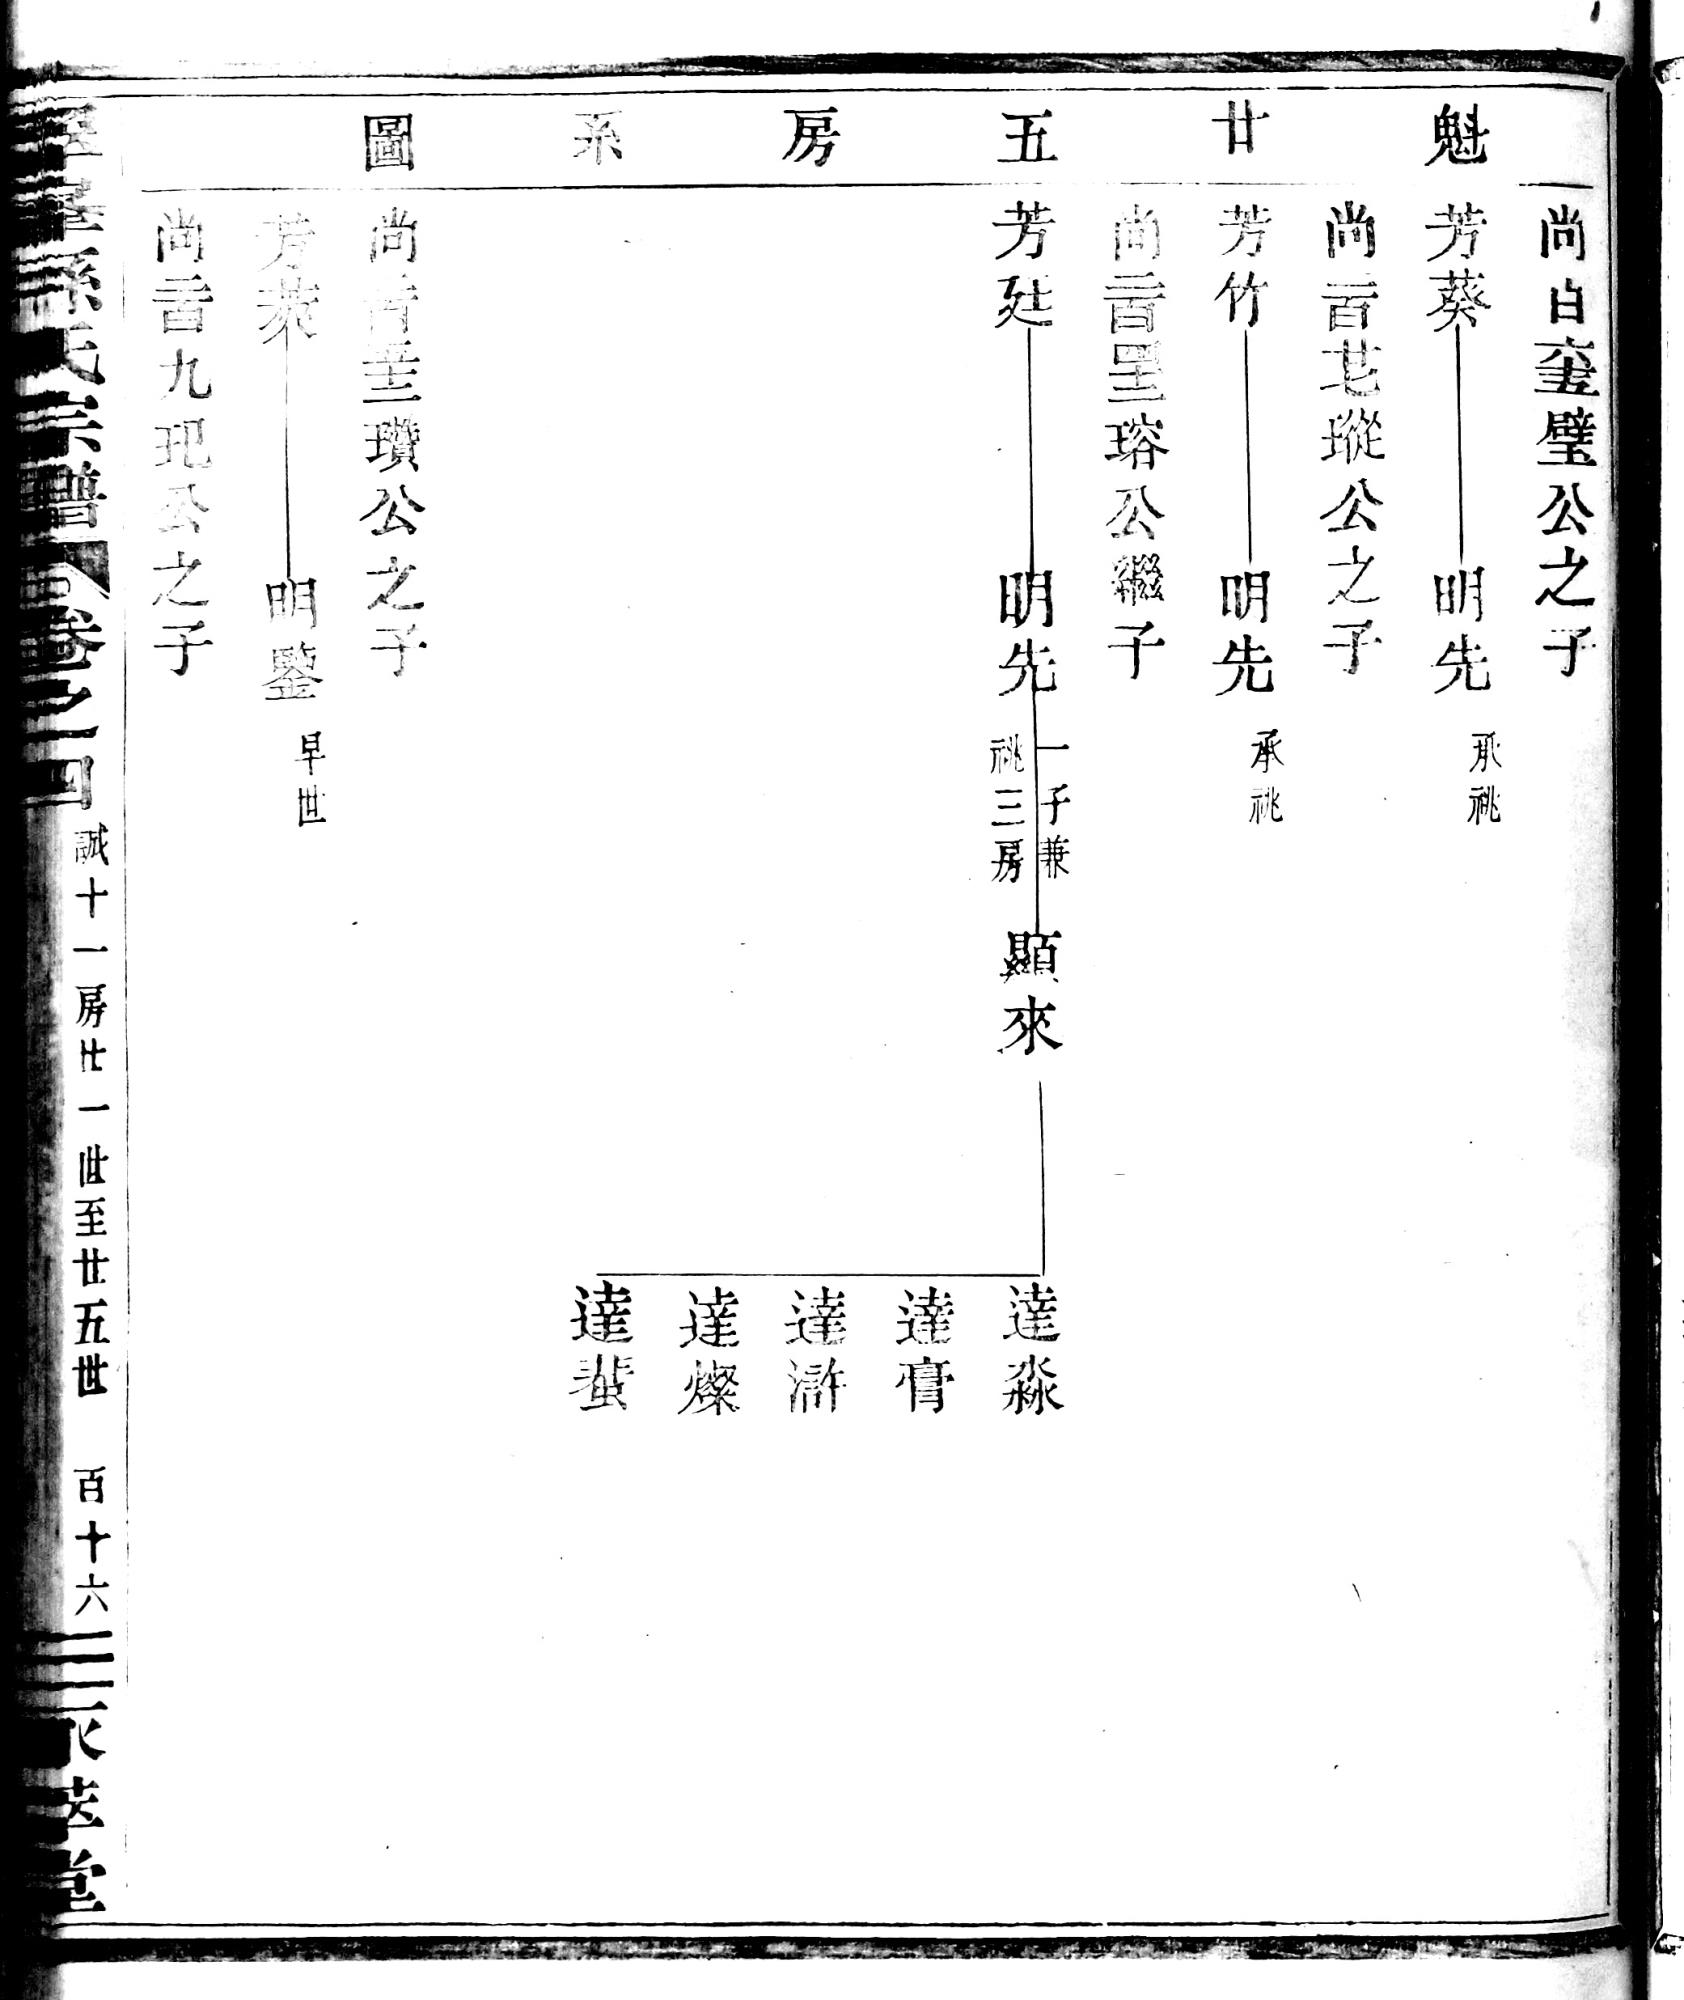 魁廿五房系圖
尚百璧公之子
芳葵
明先
承祧
尚璇公之子
芳竹
明先
承祧
尚瑢公繼子
芳廷
明先
一子兼
祧三房
顯來
達淼
達膏
達滸
達燦
達蜚
尚瓚公之子
芳
明鑒
早世
尚九玘公之子
孫氏宗譜
卷之四
誠十一房廿一世至廿五世
百十六
萃堂